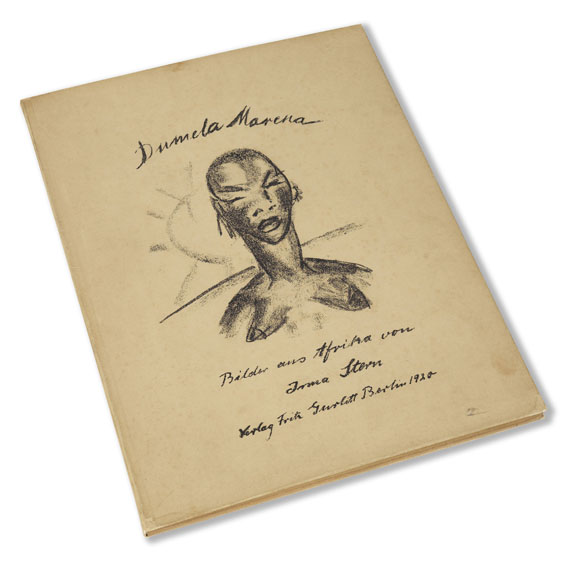 Dumela Marena
Bilder aus Afrika von
Irma Stern
Verlag Fritz Gurlitt Berlin 1920